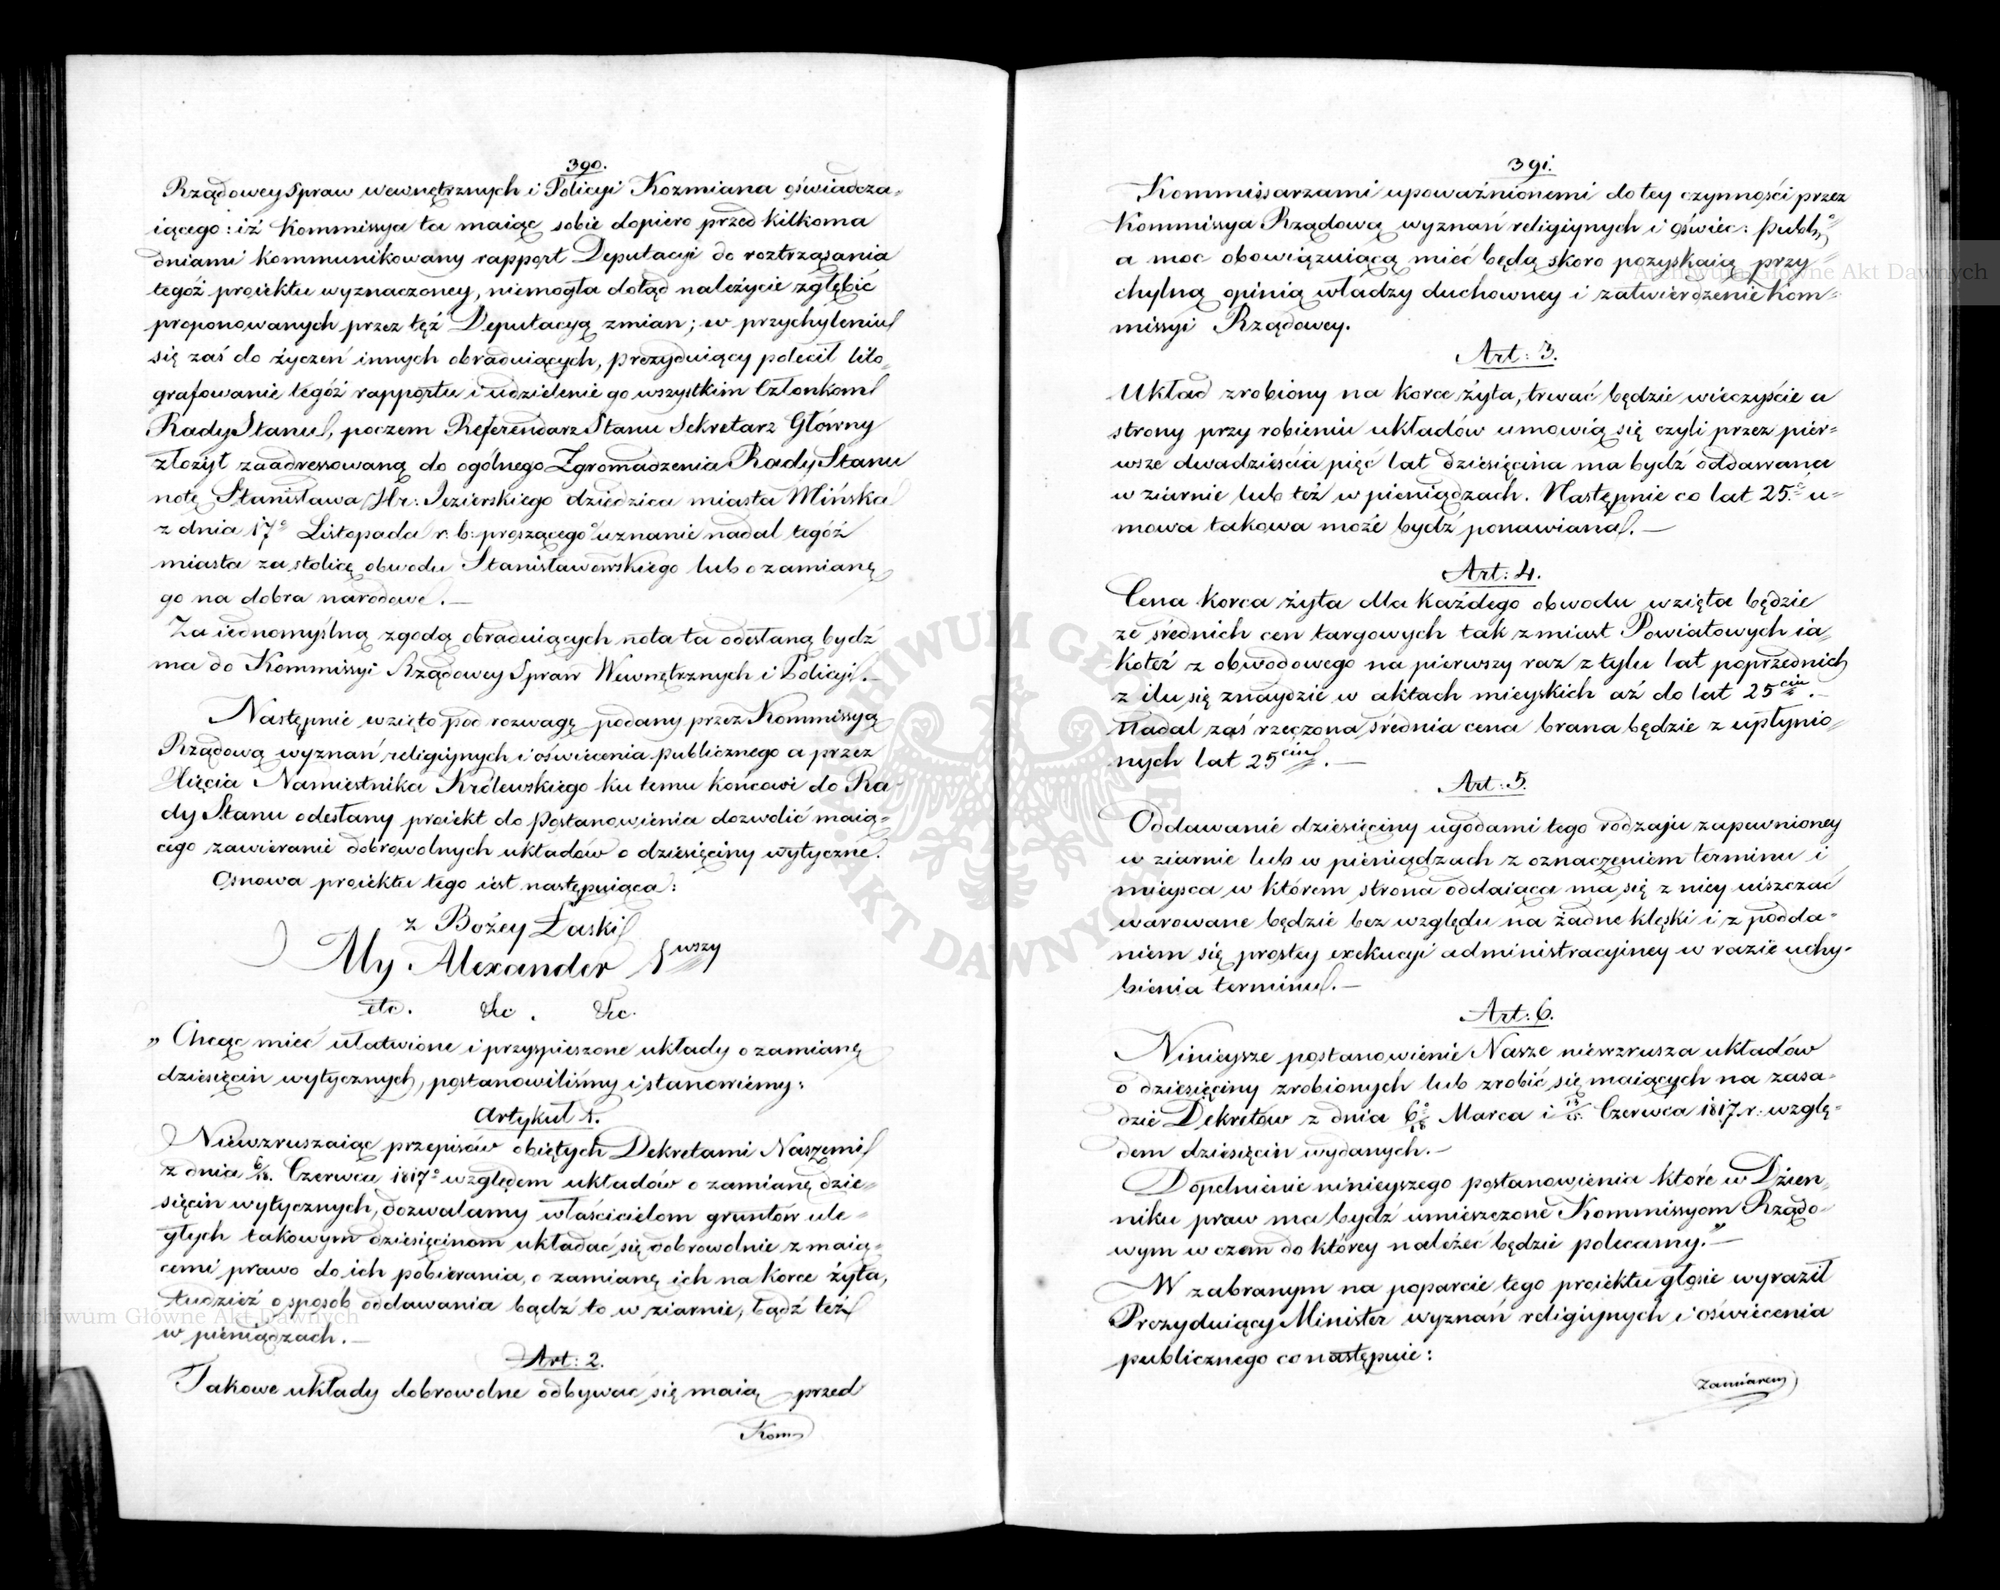 390.
Rządowey Spraw wewnętrznych i Policyi Kozmiana oświadcza-
iącego: iż Kommissya ta maiąc sobie dopiero przed kilkoma
dniami kommunikowany rapport Deputacyi do roztrząsania
tegóż proiektu wyznaczoney, niemogła dotąd należycie zgłębić
proponowanych przez tęż Deputacyą zmian; w przychyleniu
się zaś do życzeń innych obraduiących, prezyduiący polecił lito-
grafowanie tegóż rapportu i udzielenie go wszystkim Członkom
Rady Stanu, poczem Referendarz Stanu Sekretarz Główny
złożył zaadressowaną do ogólnego Zgromadzenia Rady Stanu
notę Stanisława Hr: Jezierskiego dziedzica miasta Mińska
z dnia 17º Listopada r. b. proszącego o uznanie nadal tegóż
miasta za stolicę obwodu Stanisławowskiego lub o zamianę
go na dobra narodowe. —
Za iednomyślną zgodą obraduiących nota ta odesłaną bydź
ma do Kommissyi Rządowey Spraw Wewnętrznych i Policyi. —
Następnie wzięto pod rozwagę podany przez Kommissyą
Rządową wyznań religiynych i oświecenia publicznego a przez
Xięcia Namiestnika Królewskiego ku temu końcowi do Ra-
dy Stanu odesłany proiekt do Postanowienia dozwolić maią-
cego zawieranie dobrowolnych układów o dziesięciny wytyczne.
Osnowa proiektu tego iest następuiąca:
z Bożey Łaski
My Alexander Iwszy
etc. &c. &c.
„Chcąc mieć ułatwione i przyspieszone układy o zamianę
dziesięcin wytycznych, postanowiliśmy i stanowiemy:
Artykuł 1.
Niewzruszaiąc przepisów obiętych Dekretami Naszemi
z dnia 6/18. Czerwca 1817º względem układów o zamianę dzie-
sięcin wytycznych, dozwalamy właścicielom gruntów ule-
głych takowym dziesięcinom układać się dobrowolnie z maią-
cemi prawo do ich pobierania, o zamianę ich na korce żyta,
tudzież o sposób oddawania bądź to w ziarnie, bądź też
w pieniądzach. —
Art: 2.
Takowe układy dobrowolne odbywać się maią przed
Kom
391.
Kommissarzami upoważnionemi do tey czynności przez
Kommissya Rządową wyznań religiynych i oświec: publ:
a moc obowiązuiącą mieć będą skoro pozyskaią przy-
chylną opinią władzy duchowney i zatwierdzenie Kom-
missyi Rządowey.
Art: 3.
Układ zrobiony na korce żyta, trwać będzie wieczyście a
strony przy robieniu układów umowią się czyli przez pier-
wsze dwadzieścia pięć lat dziesięcina ma bydź oddawana
w ziarnie lub też w pieniądzach. Następnie co lat 25. u-
mowa takowa może bydź ponawiana. —
Art: 4.
Cena korca żyta dla każdego obwodu wzięta będzie
ze średnich cen targowych tak z miast Powiatowych ia-
koteż z obwodowego na pierwszy raz z tylu lat poprzednich
z ilu się znaydzie w aktach mieyskich aż do lat 25ciu. —
Nadal zaś rzeczona średnia cena brana będzie z upłynio-
nych lat 25ciu. —
Art: 5.
Oddawanie dziesięciny ugodami tego rodzaju zapewnioney
w ziarnie lub w pieniądzach z oznaczeniem terminu i
mieysca w którem strona oddaiąca ma się z niey uiszczać
warowane będzie bez względu na żadne klęski i z podda-
niem się prostey exekucyi administracyiney w razie uchy-
bienia terminu. —
Art: 6.
Ninieysze postanowienie Nasze niewzrusza układów
o dziesięciny zrobionych lub zrobić się maiących na zasa-
dzie Dekretów z dnia 6/18 Marca i Czerwca 1817. r. wzglę-
dem dziesięcin wydanych. —
Dopełnienie ninieyszego postanowienia które w Dzien-
niku praw ma bydź umieszczone Kommissyom Rządo-
wym w czem do którey należeć będzie polecamy.” —
W zabranym na poparcie tego proiektu głosie wyraził
Prezyduiący Minister wyznań religiynych i oświecenia
publicznego co następuie:
zamiarem
Archiwum Główne Akt Dawnych
Archiwum Główne Akt Dawnych
ARCHIWUM GŁÓWNE AKT DAWNYCH